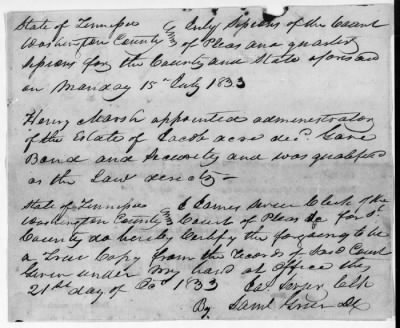 State of Tennessee July Sessions of the Court
Washington County of Pleas and quarter
Sessions for the County and State aforesaid
on Monday 15th July 1833
Henry Marsh appointed administrator
of the Estate of Jacob decd. Gave
Bond and Security and was qualified
as the Law directs—
State of Tennessee I James Clerk of the
Washington County Court of Pleas &c for sd
County do hereby Certify the forgoing to be
a True Copy from the records of said Court
Given under my hand at Office this
21st day of 1833 Ja. Clk
By Saml Greer